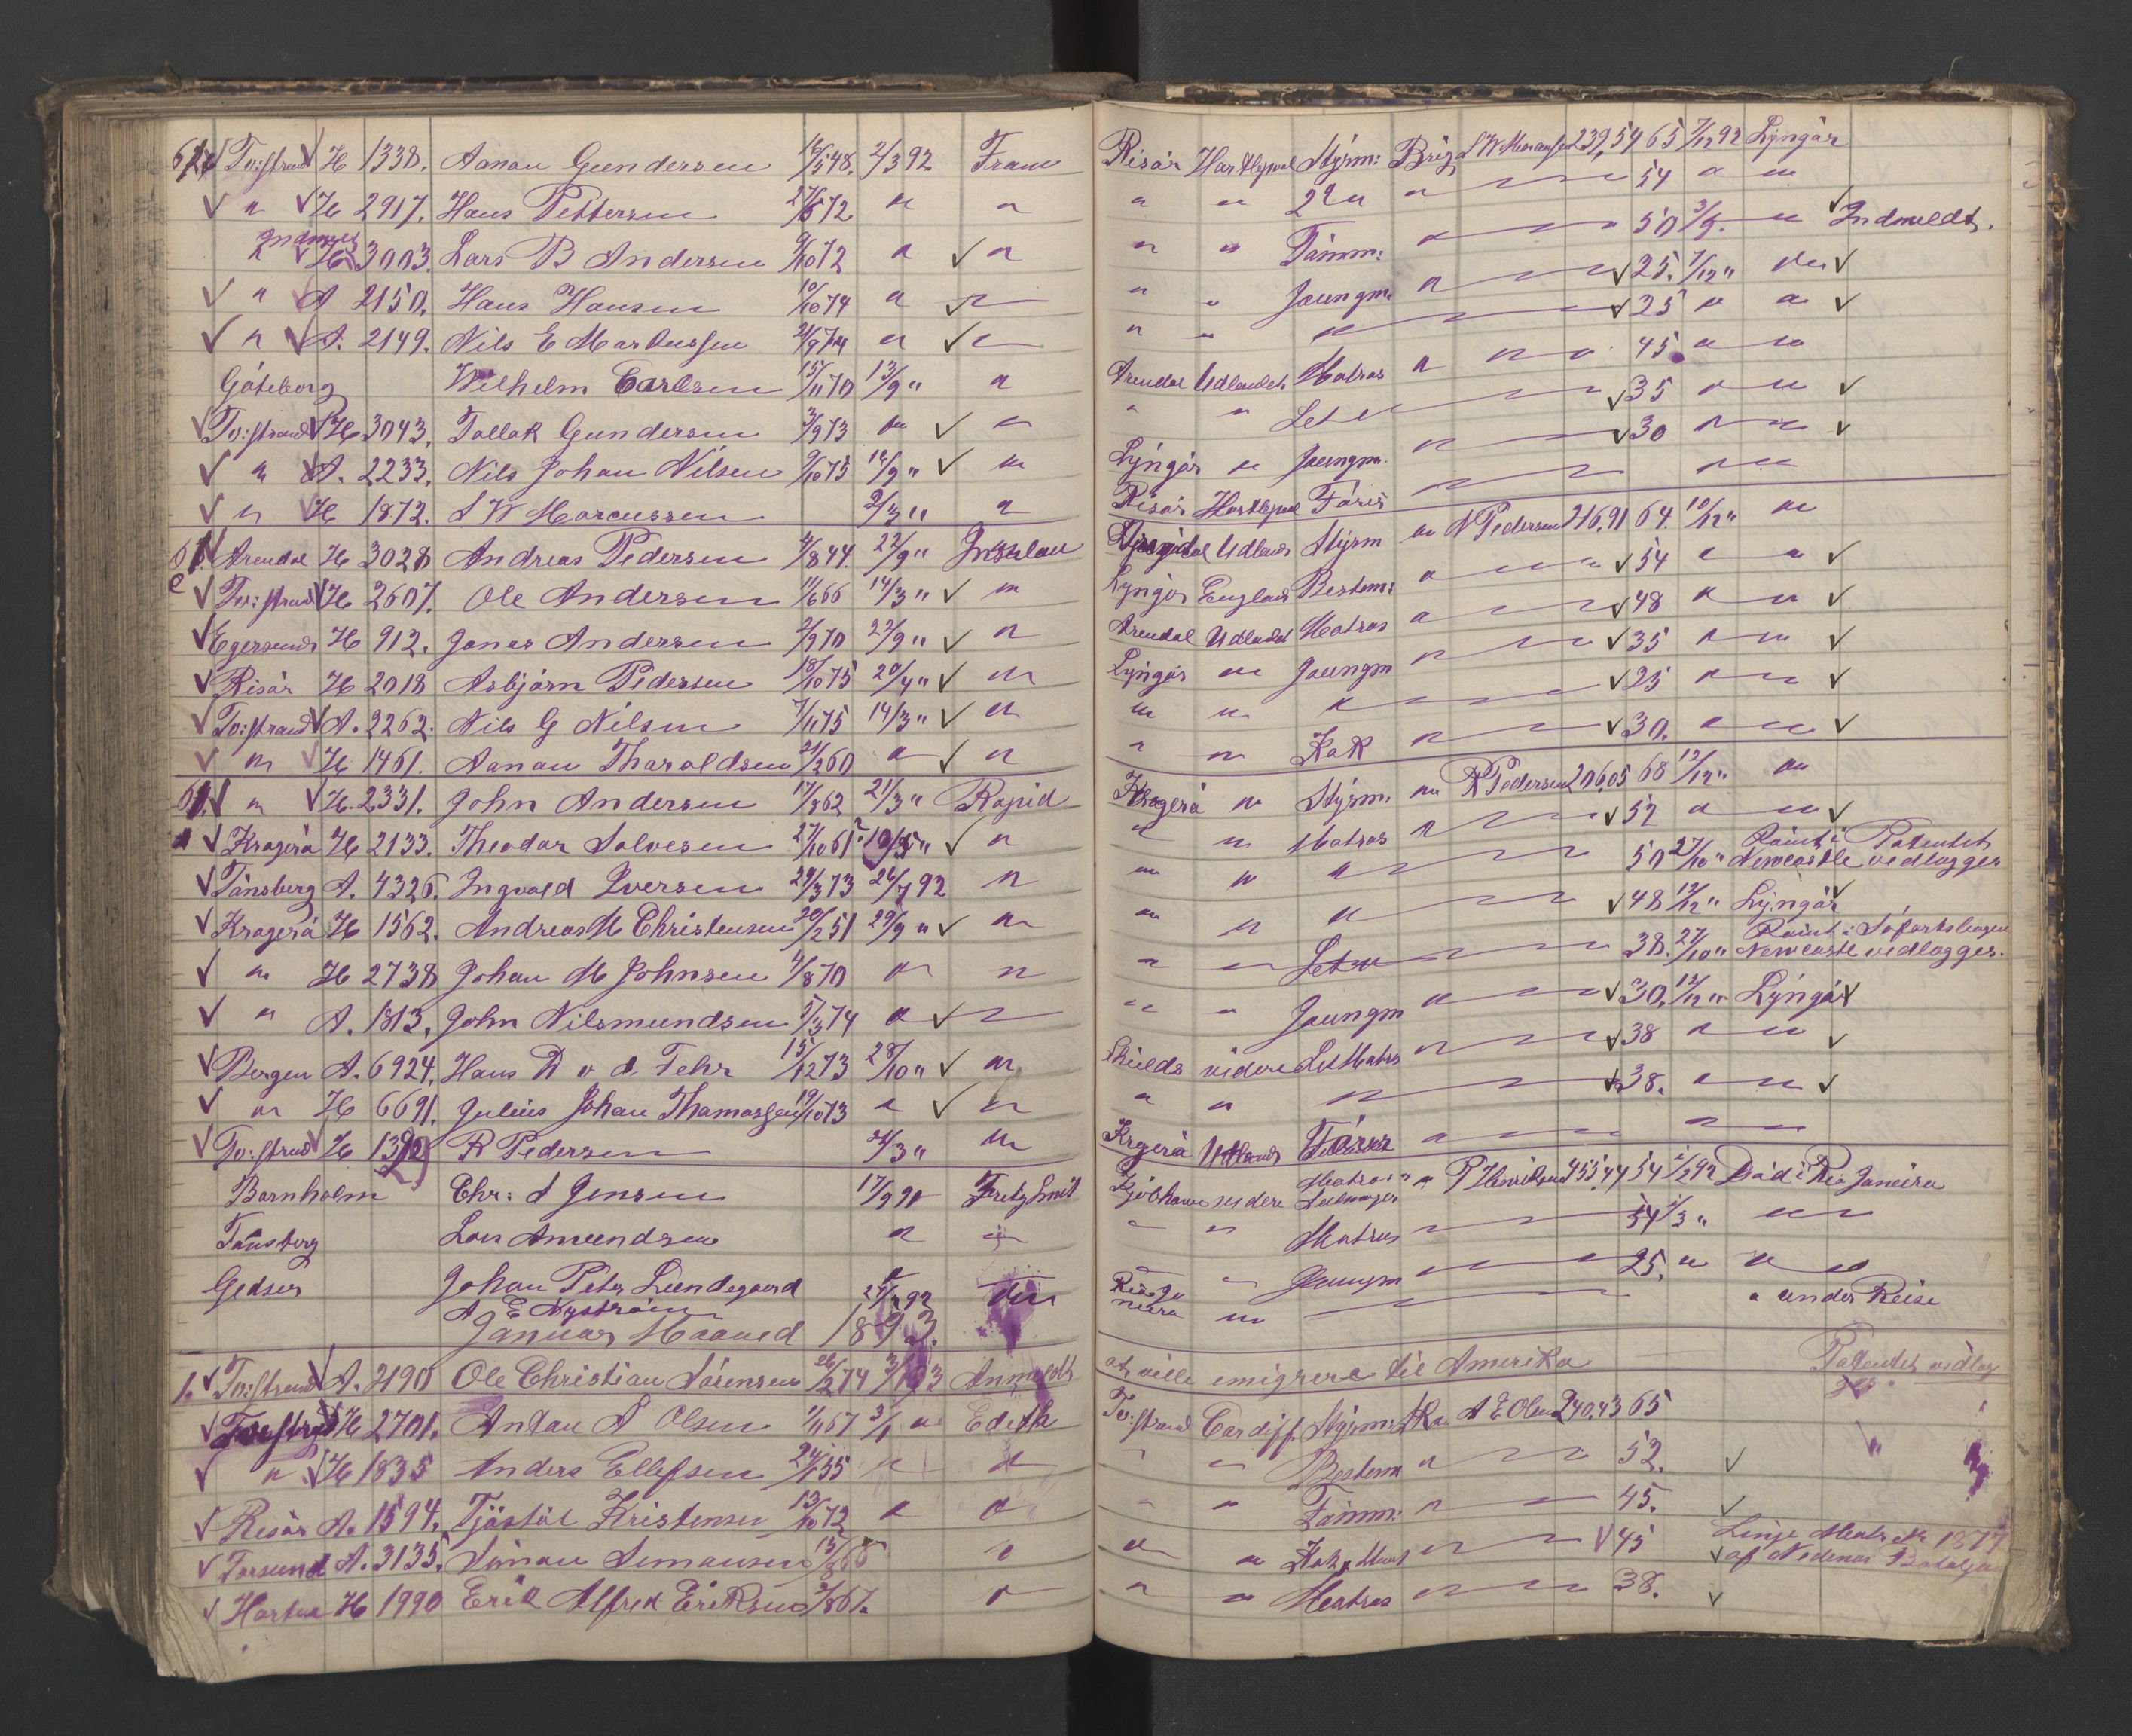 Tv:strand H 1338. Aanon Gundersen 16/5 48. 2/3 92 Fram
" H 2917. Hans Pettersen 27/5 72 " "
Indmeldt
" H 3003. Lars B Andersen 9/10 72 " "
" A 2150. Hans Hansen 10/10 74 " "
" A. 2149. Nils E Markussen 21/9 74 " "
Göteborg Wilhelm Carlsen 15/11 70 13/9 " "
Tv:strand H 3043. Tallak Gundersen 3/9 73 " "
" A. 2233. Nils Johan Nilsen 9/10 75 12/9 " "
" H 1872. S W Marcussen 2/3 " "
Arendal H 3028 Andreas Pedersen 4/8 44. 22/9 "
Tv:strand H 2607. Ole Andersen 11/6 66 14/3 " "
Egersund H 912. Jonas Andersen 2/9 70 22/9 " "
Risör H 2018 Asbjörn Pedersen 18/10 75 20/4 " "
Tv:strand A. 2262. Nils G Nilsen 7/11 75 14/3 " "
" H 1461. Aanon Tharaldsen 21/2 60 " "
" H. 2331. John Andersen 17/8 62 21/3 " Rapid
Kragerö H 2133. Theodor Solvesen 27/10 65 "
Tönsberg A. 4326. Ingvald Iversen 29/3 73 26/7 92 "
Kragerö H 1562. Andreas M Christensen 20/2 51 29/9 " "
" H 2738 Johan M Johnsen 4/8 70 " "
" A. 1813. John Nilsmundsen 5/3 74 " "
Bergen A. 6924. Hans D v d. Fehr 15/12 73 28/10 " "
" H 6691. Julius Johan Thomassen 19/10 73 " "
Tv:strand H R Pedersen 21/3 " "
Bornholm Chr: S Jensen 17/9 90 Fritz Smit
Tönsberg Lars Amundsen " "
Gedser Johan Peter Lundegaard "
A E Nyström
Januar Maaned 1893.
1. Tv:strand A. 2190 Ole Christian Sörensen 26/2 74 Anmeldt
H 2701. Antan A Olsen 1/11 67 3/1 " Edith
" H 1835 Anders Ellefsen 24/1 55 " "
Risör A. 1594. Tjöstöl Kristensen 13/10 72 " "
Farsund A. 3135. Simon Simonsen "
H 1990 Erik Alfred Eriksen 3/8 67. "
Risör Hartlepool Styrm: Brig S W Marcussen 239,54 65 7/12 92 Lyngör
" " 2d " " 54 " "
" " Tömm: " 50 3/9. " Indmeldt.
" " Jungm. " 25. 7/12 " "
" " " 25 " "
Arendal Udlandet Matros " " " 45 " "
" " Let " 35 " "
Lyngör " Jungm. " 30 " "
Risör Hartlepool Förer " "
Udland Styrm " N Pedersen 216,91 64. 10/12 " "
Lyngör England Bestm: " 54 " "
Arendal Udlandet Matros " 48 " "
Lyngör " Jungm " 35 " "
" " " 25 " "
" " Kok " 30. " "
Kragerö " Styrm. " R Pedersen 206,05 68 12/12 " "
" " Matros " 52 " "
" " " 50 27/10 " Römt i Newcastle Patentet vedlægges
" " " 48 12/12 " Lyngör
" " Let " 38. 27/10 " Römt i Newcastle Söfartsbogen vedlægges.
" " Jungm " 30. 12/12 " Lyngör
Shields videre Let Matros " 38 " "
" " " 38. " "
Kragerö Udland Förer " "
videre Matros " P Henriksen 455,44 54 Död i Rio Janeiro
" " Matros " 54 "
" " Jungm " 25. " " "
Rio Ja
neiro " " under Reise
at ville emigrere til Amerika Patentet vedlæg
ges
Tv:strand Cardiff Styrm: A E Olsen 240.43 65
" " Bestem " 52.
" " Tömm: " 45.
" " Kok & Mat " 45 Linje Matr: 1877
af Nedenes Bataljon
" " Matros " 38.